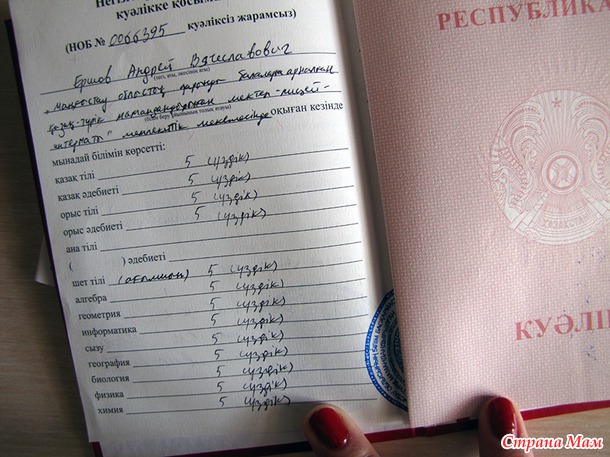 куәлікке қосым
(НОБ № 0066395 куәліксіз жарамсыз)
Ершов Андрей Вячеславович
(тегі, аты, әкесінің аты)
"Маңғыстау облыстық дарынды балаларға арналған
қазақ-түрік мамандандырылған мектеп-лицей-
(білім беру ұйымының толық атауы)
интернаты" мемлекеттік мекемесінде оқыған кезінде
мынадай білімін көрсетті:
қазақ тілі 5 (үздік)
қазақ әдебиеті 5 (үздік)
орыс тілі 5 (үздік)
орыс әдебиеті 5 (үздік)
ана тілі
( ) әдебиеті
шет тілі (ағылшын) 5 (үздік)
алгебра 5 (үздік)
геометрия 5 (үздік)
информатика 5 (үздік)
сызу 5 (үздік)
география 5 (үздік)
биология 5 (үздік)
физика 5 (үздік)
химия 5 (үздік)
РЕСПУБЛИКА
КУӘЛІК
Страна Мам